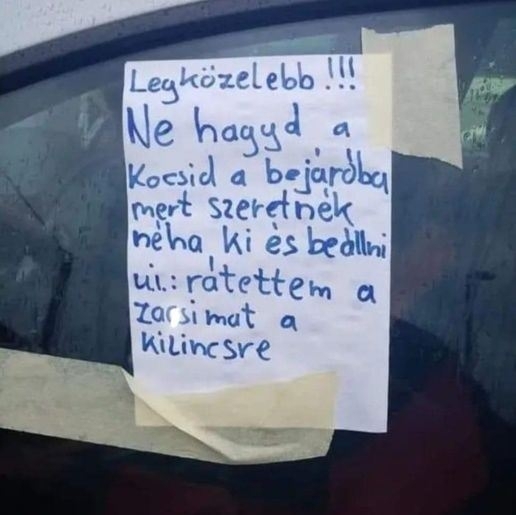 Legközelebb!!!
Ne hagyd a
kocsid a bejáróba
mert szeretnék
néha ki és beállni
ui.: rátettem a
zacsimat a
kilincsre